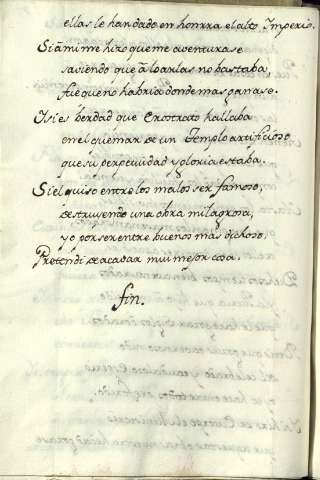 ellas le han dado en honrra el alto Imperio.
Si a mi me hizo que me aventurase
saviendo que a loarlas no bastaba,
fue que no habria donde mas ganase.
I si es berdad que Erostrato hallaba
en el quemar de un Templo artificioso
que su perpetuidad y gloria estaba.
Si el quiso entre los malos ser famoso,
destruyendo una obra milagrosa,
yo por ser entre buenos mas dichoso.
Pretendi de acavar mui mejor cosa.
fin.